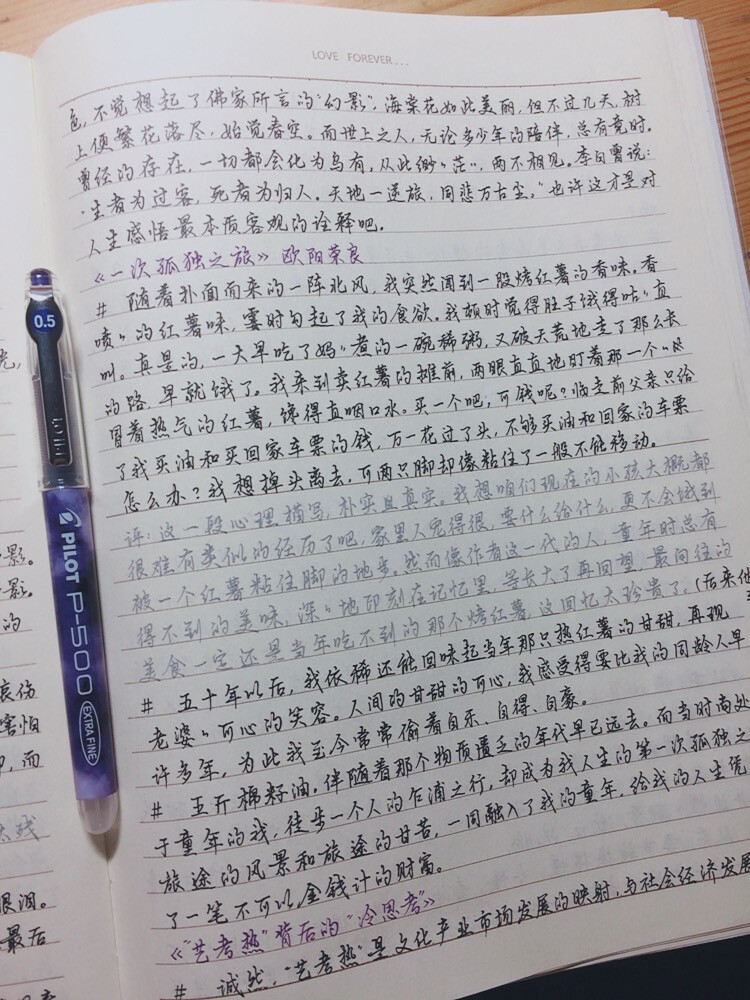 LOVE FOREVER...
色，不觉想起了佛家所言的"幻影"，海棠花如此美丽，但不过几天，树
上便繁花落尽，始觉春空。而世上之人，无论多少年的陪伴，总有竟时。
曾经的存在，一切都会化为乌有，从此缈〃茫〃，两不相见。李白曾说：
"生者为过客，死者为归人。天地一逆旅，同悲万古尘。"也许这才是对
人生感悟最本质客观的诠释吧。
《一次孤独之旅》 欧阳荣良
# 随着扑面而来的一阵北风，我突然闻到一股烤红薯的香味。香
喷〃的红薯味，霎时勾起了我的食欲。我顿时觉得肚子饿得咕〃直
叫。真是的，一大早吃了妈〃煮的一碗稀粥，又破天荒地走了那么长
的路，早就饿了。我来到卖红薯的摊前，两眼直直地盯着那一个〃
冒着热气的红薯，馋得直咽口水。买一个吧，可钱呢？临走前父亲只给
了我买油和买回家车票的钱，万一花过了头，不够买油和回家的车票
怎么办？我想掉头离去，可两只脚却像粘住了一般不能移动。
评：这一段心理描写，朴实且真实。我想咱们现在的小孩大概都
很难有类似的经历了吧，家里人宠得很，要什么给什么，更不会饿到
被一个红薯粘住脚的地步。然而像作者这一代的人，童年时总有
得不到的美味，深〃地印刻在记忆里，等长大了再回望，最向往的
美食一定还是当年吃不到的那个烤红薯，这回忆太珍贵了。（后来他
# 五十年以后，我依稀还能回味起当年那只热红薯的甘甜，再现
老婆〃可心的笑容。人间的甘甜的可心，我感受得要比我的同龄人早
许多年，为此我至今常常偷着自乐、自得、自豪。
# 五斤棉籽油。伴随着那个物质匮乏的年代早已远去。而当时尚处
于童年的我，徒步一个人的乍浦之行，却成为我人生的第一次孤独之
旅途的风景和旅途的甘苦，一同融入了我的童年，给我的人生凭
了一笔不可以金钱计的财富。
《"艺考热"背后的"冷思考"》
# 诚然，"艺考热"是文化产业市场发展的映射，与社会经济发展
0.5
PILOT
P-500
EXTRA FINE
影。
影。
的
哀伤
害怕
，而
眼泪。
最后